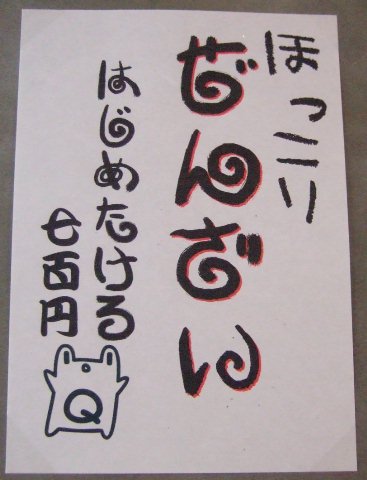 ほっこり
ぜんざい
はじめたける
七百円
Q